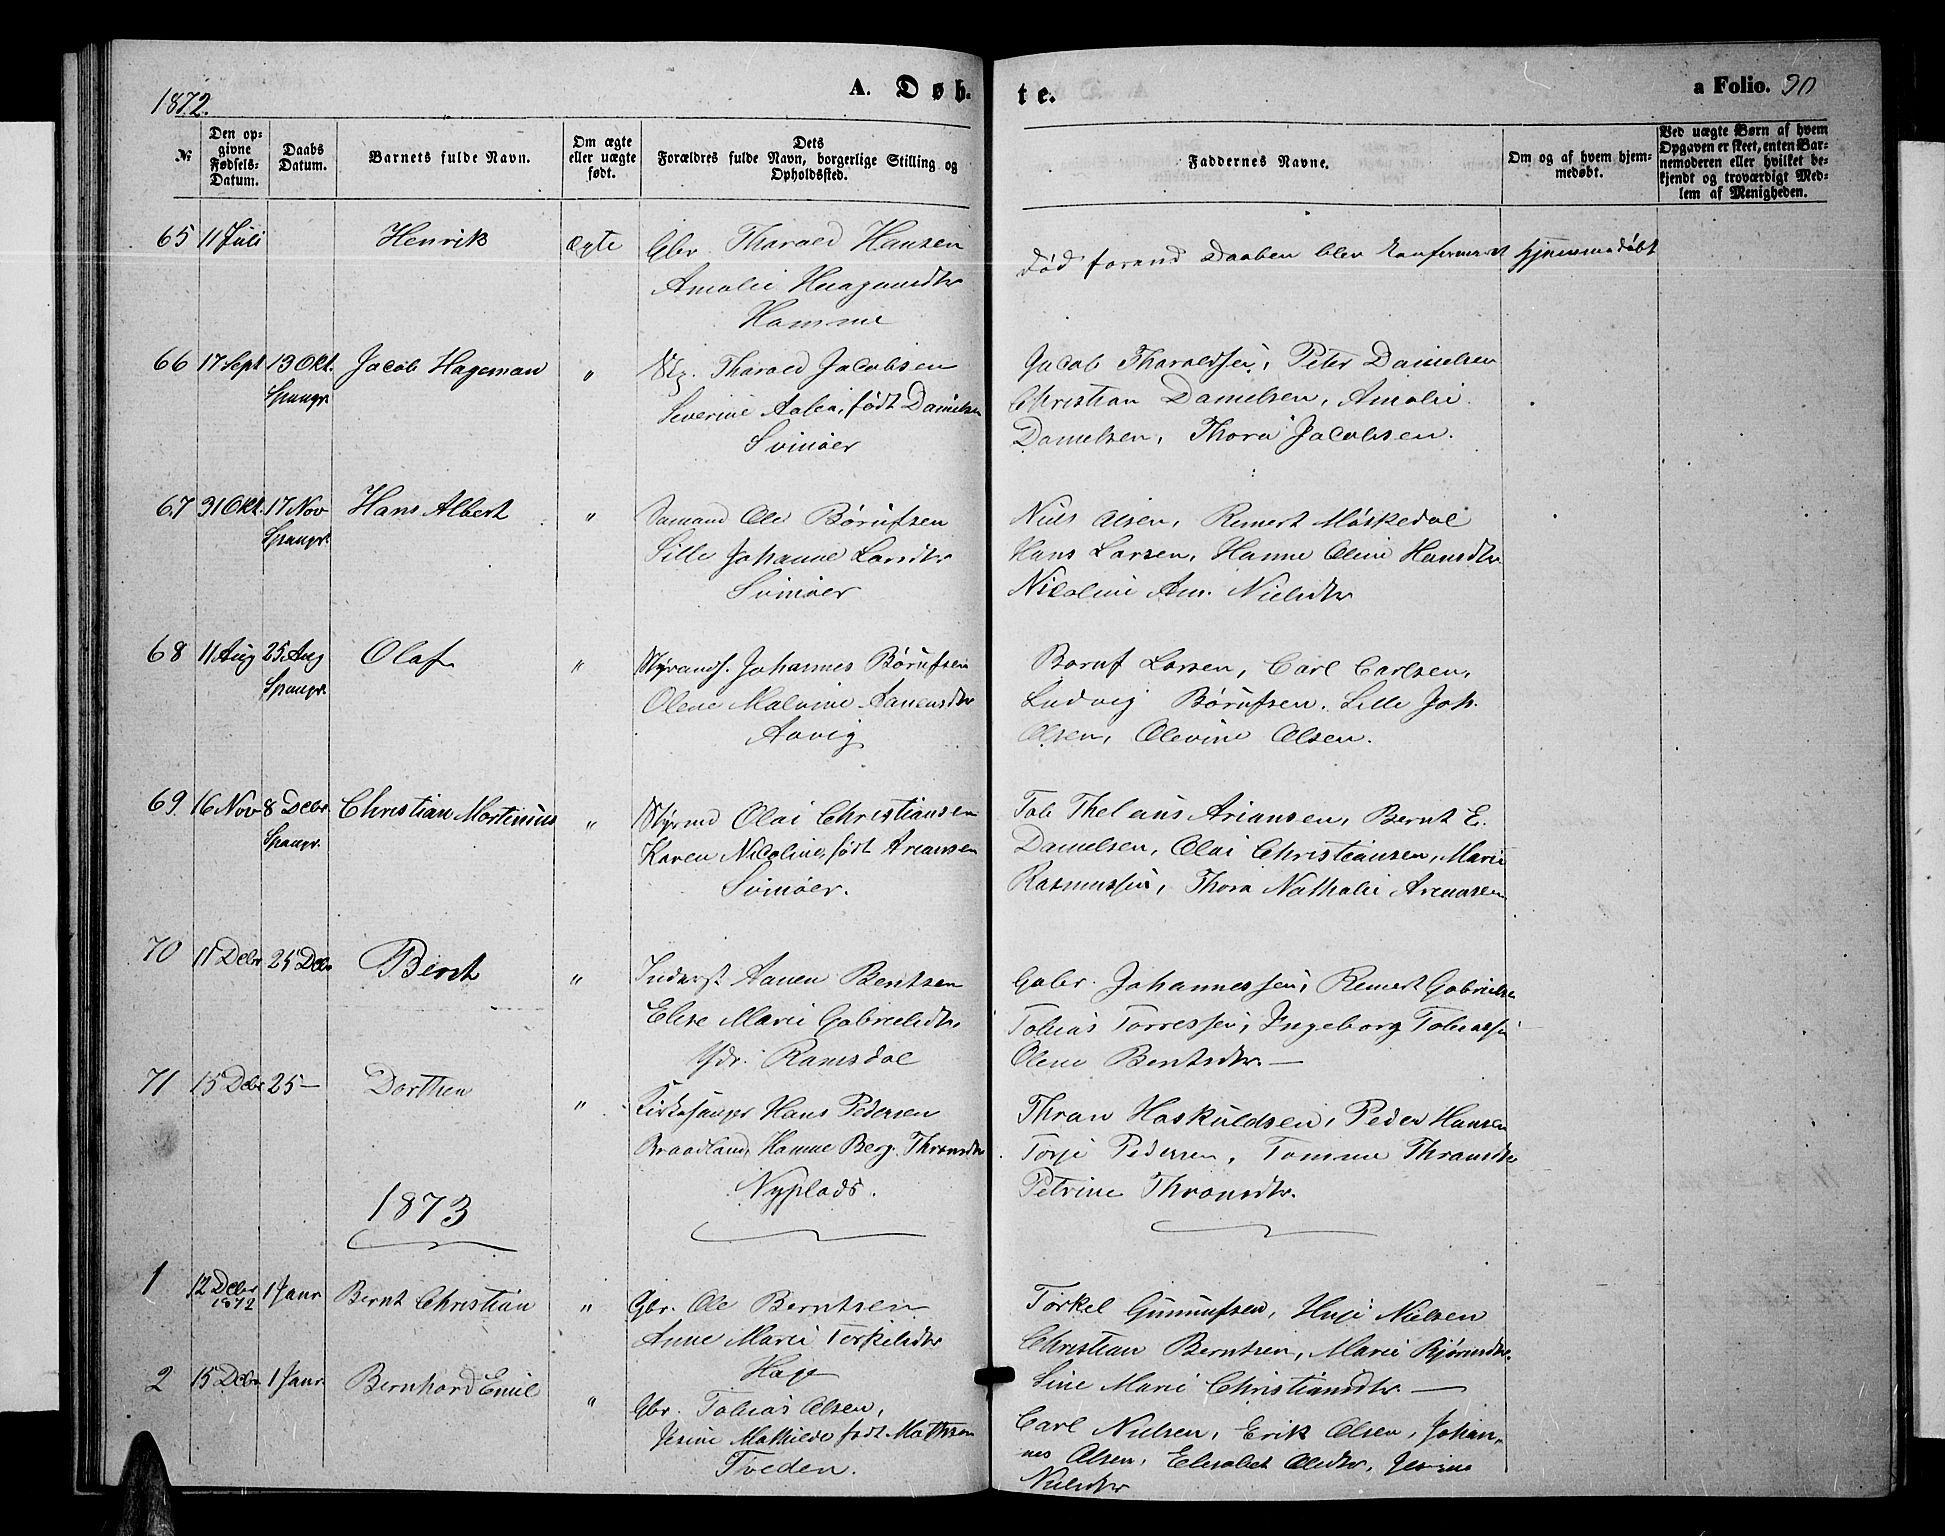 1872.
A. Døb-
te.
a Folio. 90
№
Den op-
givne
Fødsels-
Datum.
Daabs
Datum.
Barnets fulde Navn.
Om ægte
eller uægte
født.
Dets
Forældres fulde Navn, borgerlige Stilling og
Opholdssted.
Faddernes Navne.
Om og af hvem hjem-
medøbt.
Ved uægte Børn af hvem
Opgaven er skeet, enten Bar-
nemoderen eller hvilket be-
kjendt og troværdigt Med-
lem af Menigheden.
65 11 Juli Henrik ægte Gbr. Tharald Hansen
Amalie Haagansdtr
Hamme
Død forend Daaben blev Konfirmeret hjemmedøbt
66 17 Sept 13 Okt. Jacob Hageman " Tharald Jacobsen
Spangr. Severine Aalea, født Danielsen
Svinøer
Jacob Tharaldsen, Peter Danielsen
Christian Danielsen, Amalie
Danielsen, Thora Jacobsen.
67 31 Okt. 17 Nov Hans Albert " Sømand Ole Børufsen
Spangr. Sille Johanne Larsdtr
Svinøer
Niels Olsen, Remert Møskedal
Hans Larsen, Hanne Oline Hansdtr
Nicoline Am. Nielsdtr
68 11 Aug 25 Aug Olaf " Johannes Børufsen
Spangr. Olene Malvine Aanensdtr
Aavig
Boruf Larsen, Carl Carlsen,
Ludvig Børufsen. Sille Joh.
Olsen, Olevine Olsen.
69. 16 Nov 8 Decbr Christian Martinius " Styrmd Olai Christiansen
Spangr. Karen Nicoline, født Ariansen
Svinøer.
Tob Thelaus Ariansen, Bernt E.
Danielsen, Olai Christiansen, Marie
Rasmussen, Thora Nathalie Ariansen
70 11 Decbr 25 Decbr Bernt " Inderst Aanen Bentsen
Elise Marie Gabrielsdtr.
Ydr. Ramsdal
Gabr. Johannessen, Remert Gabrielsen
Tobias Torressen, Ingeborg Tobiassen
Olene Bentsdtr. —
71 15 Decbr 25 — Dorthea " Kirkesanger Hans Pedersen
Braadland, Hanne Berg. Thronsdtr
Nyplads.
Thron Haskuldsen, Peder Hansen
Torje Pedersen, Tomine Thronsdtr
Petrine Thronsdtr.
1873
1 12 Decbr 1872 1 Janr Bernt Christian " Gbr. Ole Berntsen
Anne Marie Torkelsdtr
Hage
Torkel Gunnufsen, Huje Nielsen
Christian Berntsen, Marie Bjørnsdtr.
Sine Marie Christiansdtr —
2 15 Decbr 1 Janr Bernhard Emil " Gbr. Tobias Olsen,
Jesine Mathilde født Mathsen
Tveden.
Carl Nielsen, Erik Olsen, Johan-
nes Olsen, Elisabet Olsdtr, Jesine
Nielsdtr